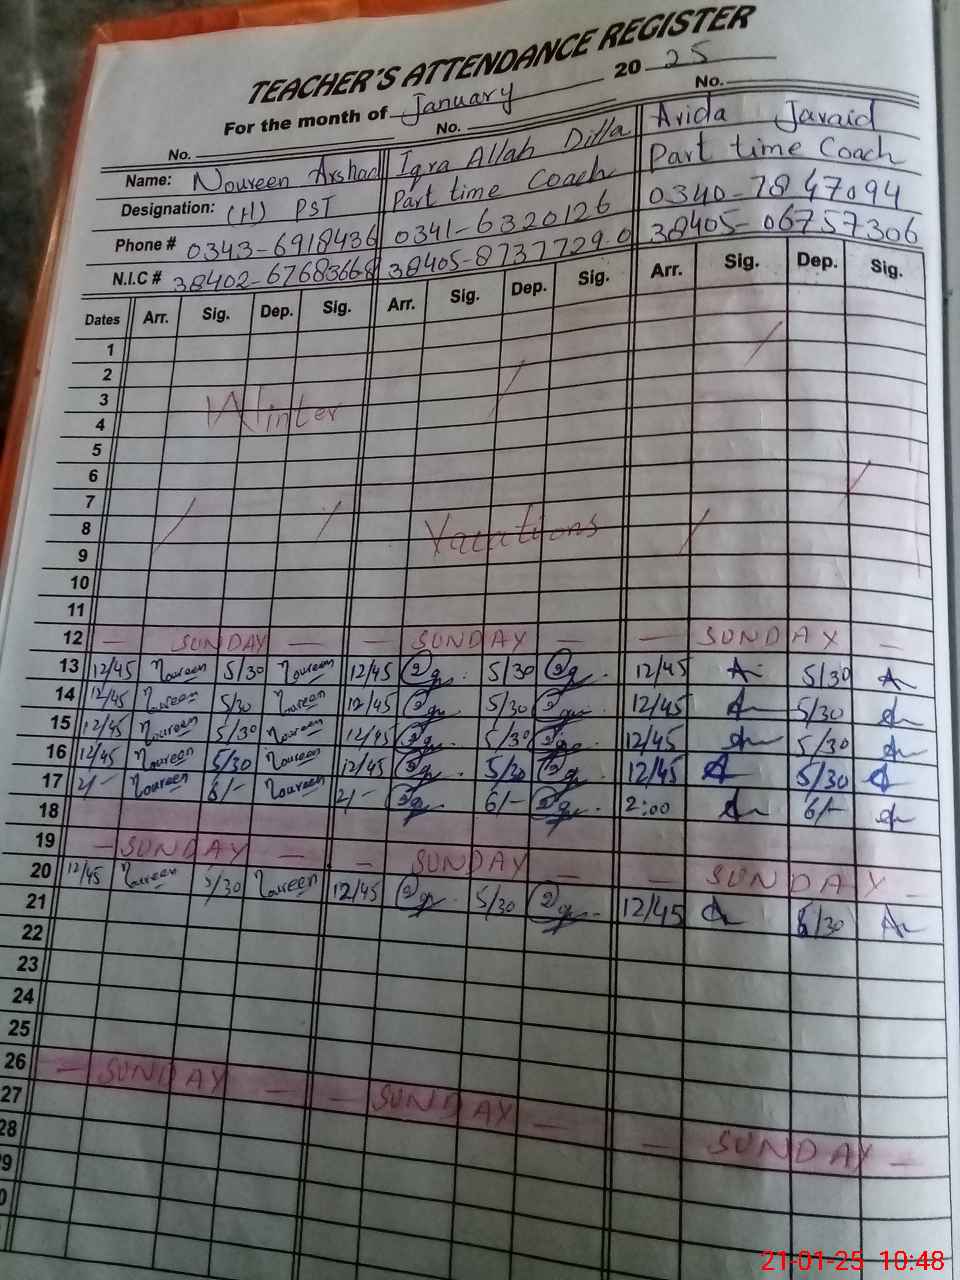 TEACHER'S ATTENDANCE REGISTER
For the month of January 2025
No. No. No.
Name: Noureen Arshad Iqra Allah Ditta Arida Javaid
Designation: (H) PST Part time Coach Part time Coach
Phone # 0343-6918436 0341-6320126 0340-7847094
N.I.C # 38402-67683668 38405-8737729-0 38405-06757306
Dates Arr. Sig. Dep. Sig. Arr. Sig. Dep. Sig. Arr. Sig. Dep. Sig.
1
2
3 Winter
4
5
6
7
8 Vacations
9
10
11
12 SUNDAY SUNDAY SUNDAY
13 12/45 Noureen 5/30 Noureen 12/45 5/30 12/45 5/30
14 12/45 Noureen 5/30 Noureen 12/45 5/30 12/45 5/30
15 12/45 Noureen 5/30 Noureen 12/45 5/30 12/45 5/30
16 12/45 Noureen 5/30 Noureen 12/45 5/30 12/45 5/30
17 2/- Noureen 6/- Noureen 2/- 6/- 2:00 6/-
18
19 SUNDAY SUNDAY SUNDAY
20 12/45 Noureen 5/30 Noureen 12/45 5/30 12/45 5/30
21
22
23
24
25
26 SUNDAY SUNDAY SUNDAY
27
28
21-01-25 10:48